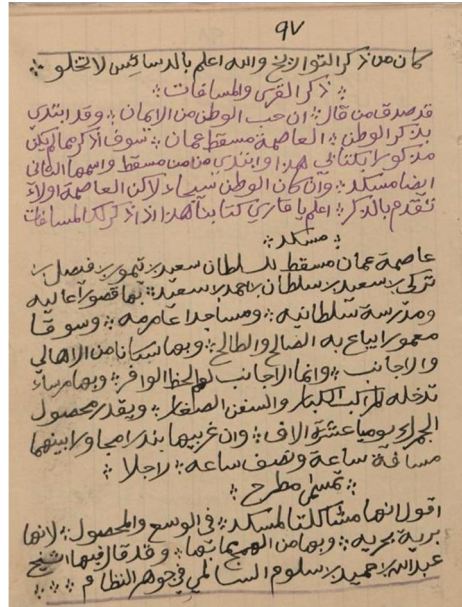 ٩٧
كان من ذكر التواريخ والله اعلم بالدسائس لا تخلو
ذكر القرى والمسافات
قد صدق من قال ان حب الوطن من الايمان وقد ابتدي
بذكر الوطن العاصمة مسقط عمان سوف اذكرها ليكن
مذكورا بكتابي هذا وابتدي من من مسقط واسمها الثاني
ايضا مسكد وان كان الوطن لاكن العاصمة اولاء
تقدم بالذكر اعلم يا قاري كتابنا هذا اذ اذكر لك المسافات
مسكد
عاصمة عمان مسقط للسلطان سعيد بن تيمور بن فيصل بن
تركي بن سعيد بن سلطان بن احمد بن سعيد بها قصور عاليه
ومدرسة سلطانيه ومساجدا عامرمه وسوقا
معمورا يباع به الصالح والطالح وبها سكانا من الاهالي
والاجانب وانما الاجانب لهم الحظ الوافر وبها مرساء
تدخله المراكب الكبار والسفن الصغار ويقدر محصول
الجمرك يوميا عشرة الاف وان غربيها بندرا مجاورا بينهما
مسافة ساعة ونصف ساعه راجلا
تسمى مطرح
اقول انها مشاكلتا لمسكد في الوسع والمحصول لانها
برية بحريه وبها من وقد قال فيها الشيخ
عبدالله بن حميد بن سلوم السالمي في جوهر النظام